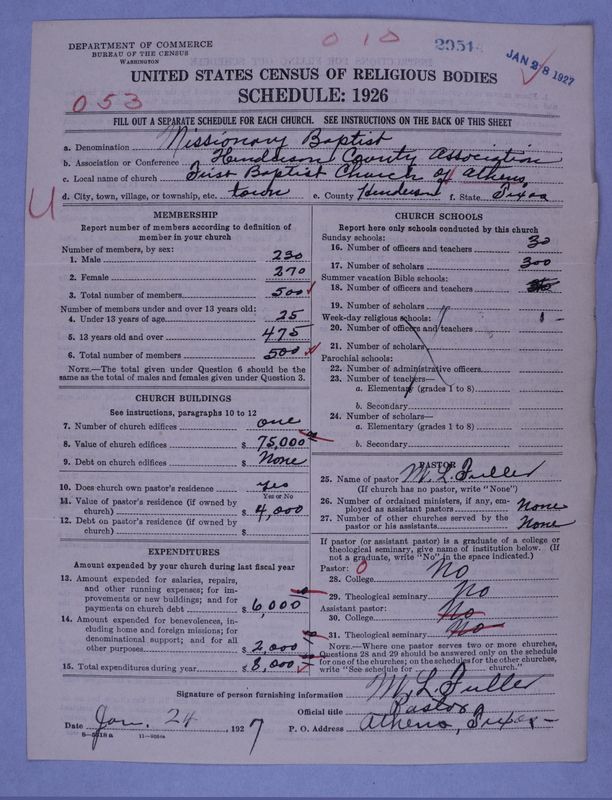 DEPARTMENT OF COMMERCE
BUREAU OF THE CENSUS
WASHINGTON
010
JAN 28 1927
053
UNITED STATES CENSUS OF RELIGIOUS BODIES
SCHEDULE: 1926
FILL OUT A SEPARATE SCHEDULE FOR EACH CHURCH. SEE INSTRUCTIONS ON THE BACK OF THIS SHEET
a. Denomination Missionary Baptist
b. Association or Conference Henderson County Association
c. Local name of church First Baptist Church of Athens,
d. City, town, village, or township, etc. town e. County Henderson f. State Texas
U
MEMBERSHIP
Report number of members according to definition of
member in your church
Number of members, by sex:
1. Male 230
2. Female 270
3. Total number of members 500
Number of members under and over 13 years old:
4. Under 13 years of age 25
5. 13 years old and over 475
6. Total number of members 500
NOTE.—The total given under Question 6 should be the
same as the total of males and females given under Question 3.
CHURCH BUILDINGS
See instructions, paragraphs 10 to 12
7. Number of church edifices one
8. Value of church edifices $ 75,000
9. Debt on church edifices $ None
10. Does church own pastor's residence yes
Yes or No
11. Value of pastor's residence (if owned by
church) $ 4,000
12. Debt on pastor's residence (if owned by
church) $
EXPENDITURES
Amount expended by your church during last fiscal year
13. Amount expended for salaries, repairs,
and other running expenses; for im-
provements or new buildings; and for
payments on church debt $ 6,000
14. Amount expended for benevolences, in-
cluding home and foreign missions; for
denominational support; and for all
other purposes $ 2,000
15. Total expenditures during year $ 8,000
CHURCH SCHOOLS
Report here only schools conducted by this church
Sunday schools:
16. Number of officers and teachers 30
17. Number of scholars 300
Summer vacation Bible schools:
18. Number of officers and teachers
19. Number of scholars
Week-day religious schools:
20. Number of officers and teachers
21. Number of scholars
Parochial schools:
22. Number of administrative officers
23. Number of teachers—
a. Elementary (grades 1 to 8)
b. Secondary
24. Number of scholars—
a. Elementary (grades 1 to 8)
b. Secondary
PASTOR
25. Name of pastor M. L. Fuller
(If church has no pastor, write "None")
26. Number of ordained ministers, if any, em-
ployed as assistant pastors None
27. Number of other churches served by the
pastor or his assistants None
If pastor (or assistant pastor) is a graduate of a college or
theological seminary, give name of institution below. (If
not a graduate, write "No" in the space indicated.)
Pastor: 0
28. College No
29. Theological seminary No
Assistant pastor:
30. College No
31. Theological seminary No
NOTE.—Where one pastor serves two or more churches,
Questions 28 and 29 should be answered only on the schedule
for one of the churches; on the schedules for the other churches,
write "See schedule for church."
Signature of person furnishing information M. L. Fuller
Official title Pastor
Date Jan. 24, 1927 P. O. Address Athens, Texas